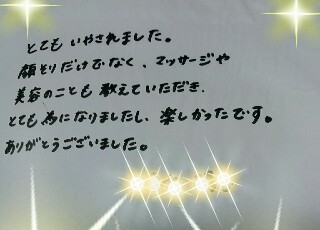 とてもいやされました。
顔そりだけでなく、マッサージや
美容のことも教えていただき、
とても為になりましたし、楽しかったです。
ありがとうございました。